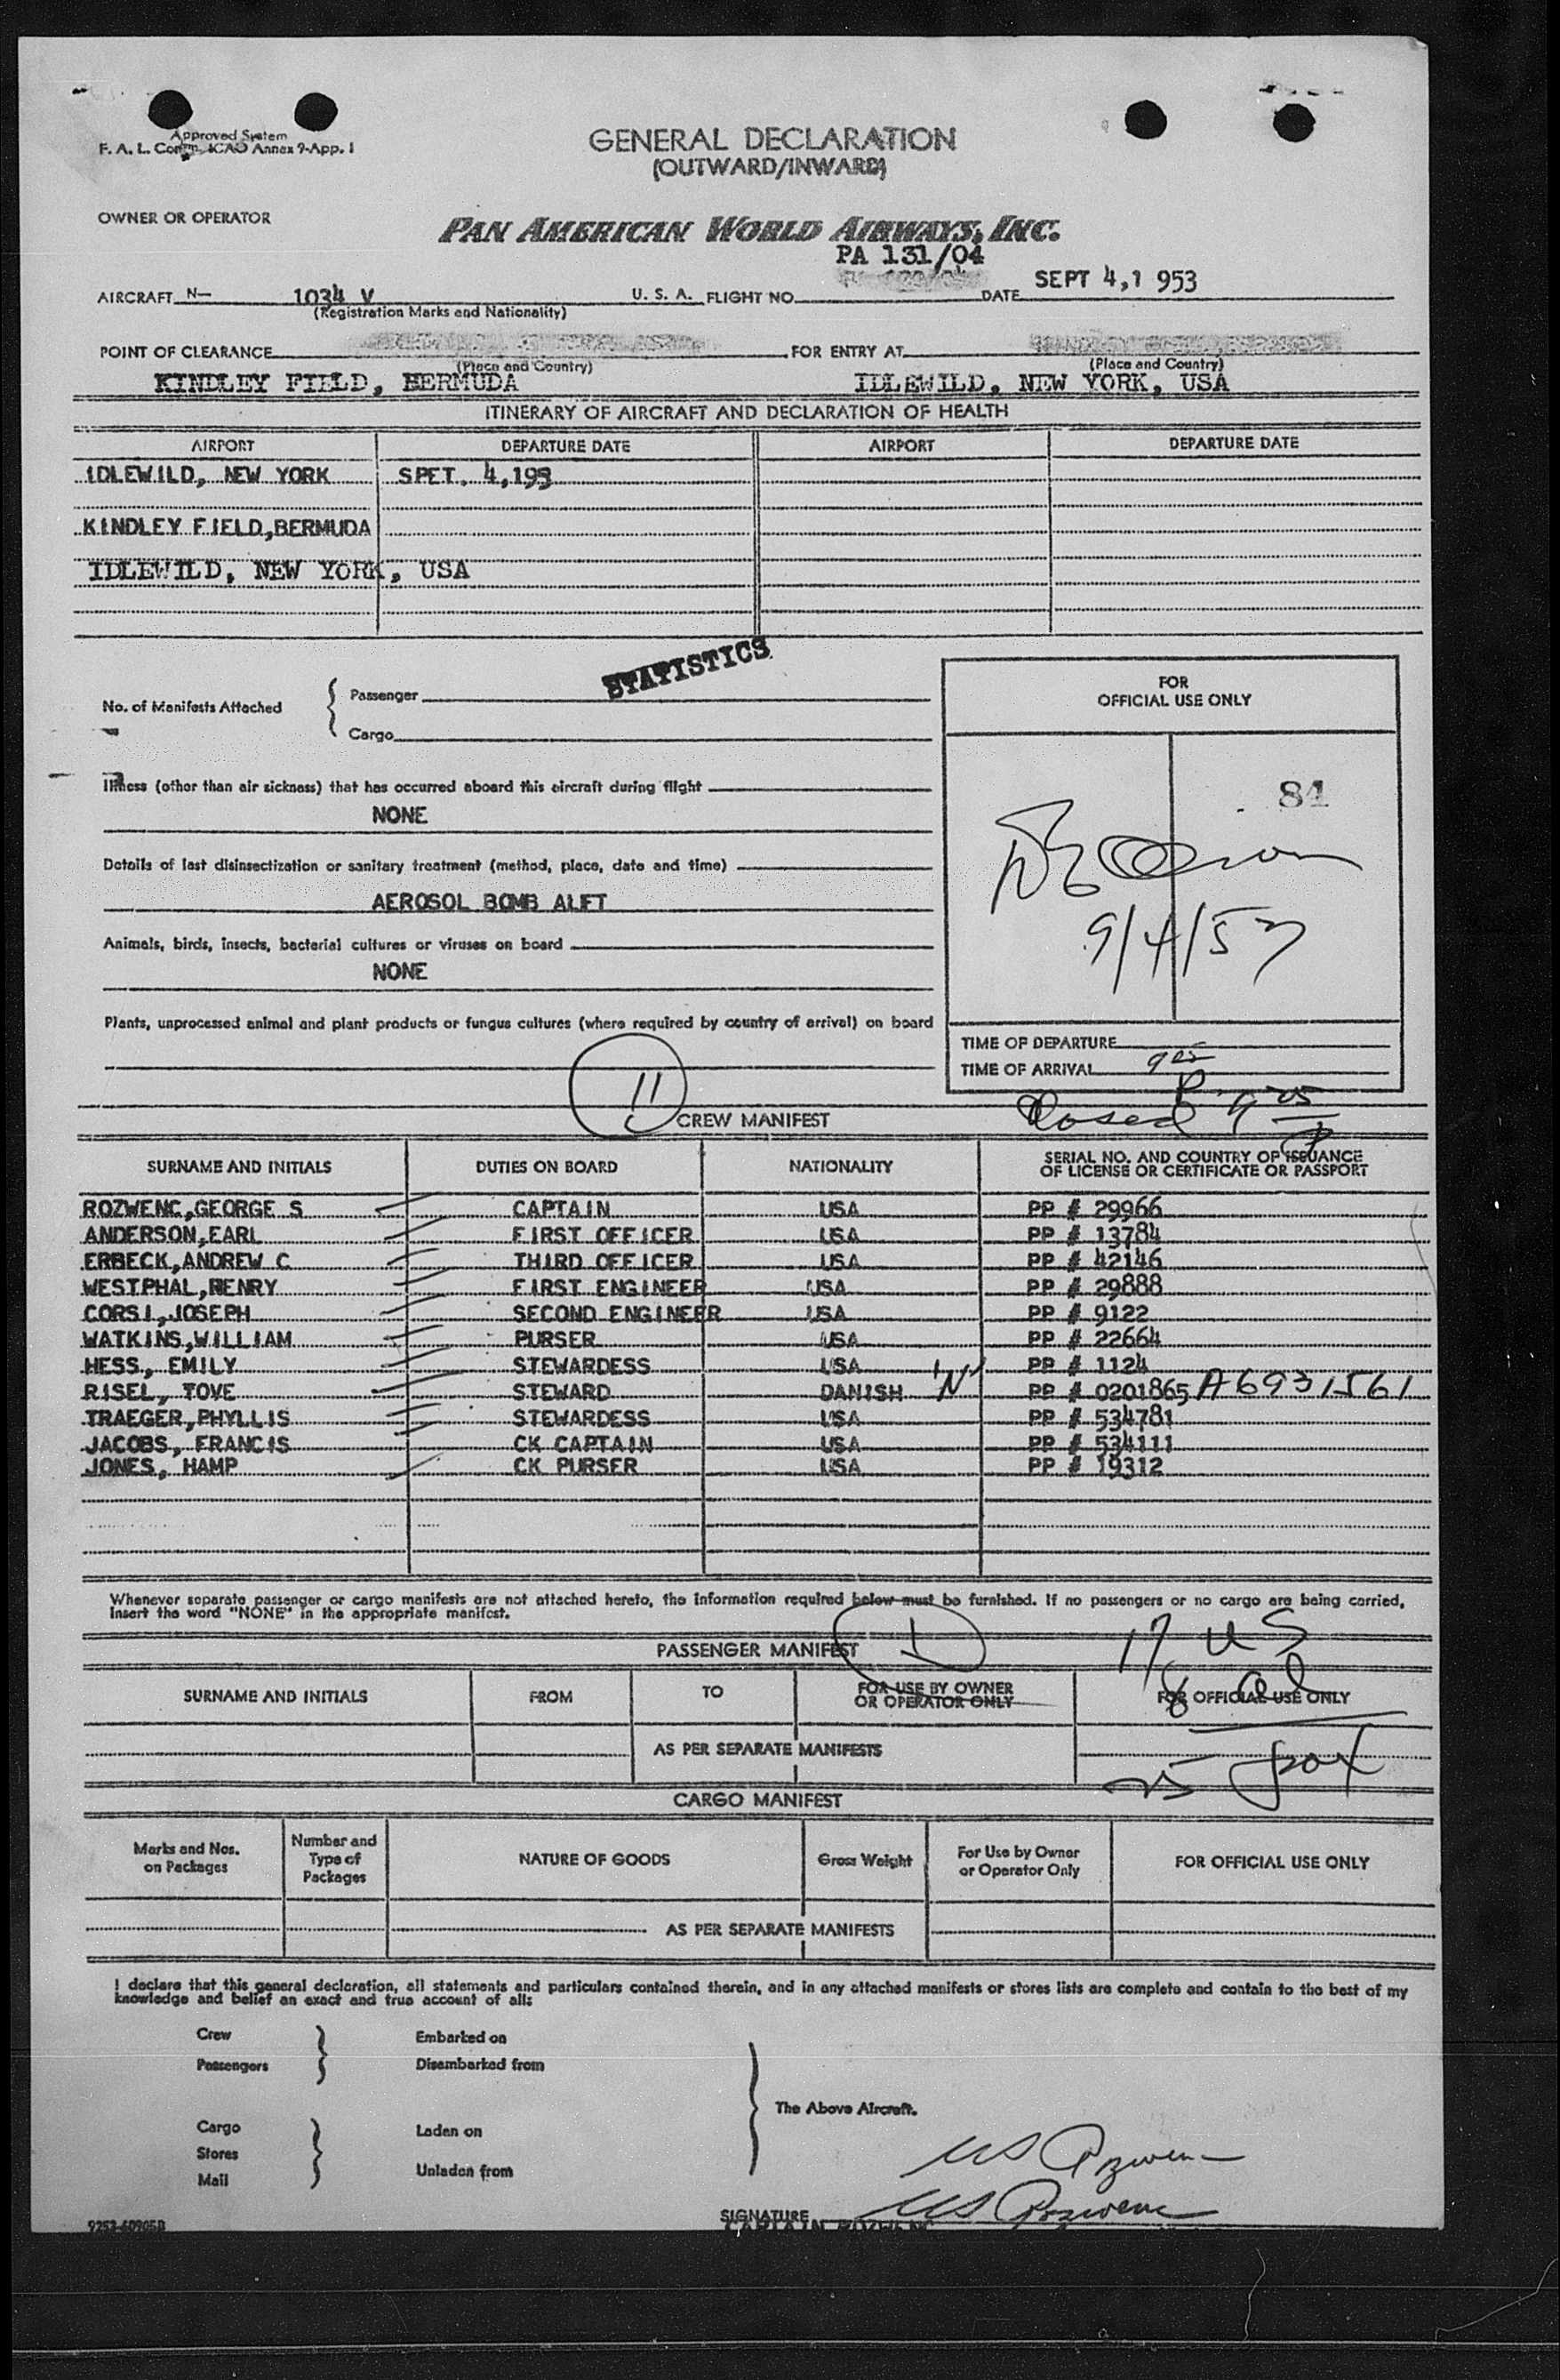 Approved System
F. A. L. Comm. ICAO Annex 9-App. 1
GENERAL DECLARATION
(OUTWARD/INWARD)
OWNER OR OPERATOR
PAN AMERICAN WORLD AIRWAYS, INC.
PA 131/04
AIRCRAFT N— 1034 V U. S. A. FLIGHT NO. DATE SEPT 4,1 953
(Registration Marks and Nationality)
POINT OF CLEARANCE FOR ENTRY AT
(Place and Country) (Place and Country)
KINDLEY FIELD, BERMUDA IDLEWILD, NEW YORK, USA
ITINERARY OF AIRCRAFT AND DECLARATION OF HEALTH
AIRPORT DEPARTURE DATE AIRPORT DEPARTURE DATE
IDLEWILD, NEW YORK SPET. 4,195
KINDLEY FIELD,BERMUDA
IDLEWILD, NEW YORK, USA
STATISTICS
No. of Manifests Attached { Passenger
Cargo
FOR
OFFICIAL USE ONLY
84
9/4/53
Illness (other than air sickness) that has occurred aboard this aircraft during flight
NONE
Details of last disinsectization or sanitary treatment (method, place, date and time)
AEROSOL BOMB ALFT
Animals, birds, insects, bacterial cultures or viruses on board
NONE
Plants, unprocessed animal and plant products or fungus cultures (where required by country of arrival) on board
TIME OF DEPARTURE
TIME OF ARRIVAL 9 05 P
11
Closed 9 05 P
CREW MANIFEST
SURNAME AND INITIALS DUTIES ON BOARD NATIONALITY SERIAL NO. AND COUNTRY OF ISSUANCE
OF LICENSE OR CERTIFICATE OR PASSPORT
ROZWENC,GEORGE S CAPTAIN USA PP # 29966
ANDERSON,EARL FIRST OFFICER USA PP # 13784
ERBECK,ANDREW C THIRD OFFICER USA PP # 42146
WESTPHAL,HENRY FIRST ENGINEER USA PP # 29888
CORSI,JOSEPH SECOND ENGINEER USA PP # 9122
WATKINS,WILLIAM PURSER USA PP # 22664
HESS, EMILY STEWARDESS USA PP # 1124
RISEL, TOVE STEWARD DANISH 'N' PP # 0201865 A6931561
TRAEGER,PHYLLIS STEWARDESS USA PP # 534781
JACOBS, FRANCIS CK CAPTAIN USA PP # 534111
JONES, HAMP CK PURSER USA PP # 19312
Whenever separate passenger or cargo manifests are not attached hereto, the information required below must be furnished. If no passengers or no cargo are being carried,
insert the word "NONE" in the appropriate manifest.
PASSENGER MANIFEST 1 17 US
8 al
SURNAME AND INITIALS FROM TO FOR USE BY OWNER
OR OPERATOR ONLY FOR OFFICIAL USE ONLY
AS PER SEPARATE MANIFESTS
25 pax
CARGO MANIFEST
Marks and Nos.
on Packages Number and
Type of
Packages NATURE OF GOODS Gross Weight For Use by Owner
or Operator Only FOR OFFICIAL USE ONLY
AS PER SEPARATE MANIFESTS
I declare that this general declaration, all statements and particulars contained therein, and in any attached manifests or stores lists are complete and contain to the best of my
knowledge and belief an exact and true account of all:
Crew Embarked on
Passengers Disembarked from
The Above Aircraft.
Cargo Laden on
Stores
Mail Unladen from
SIGNATURE
CAPTAIN ROZWENC
9253-60905B